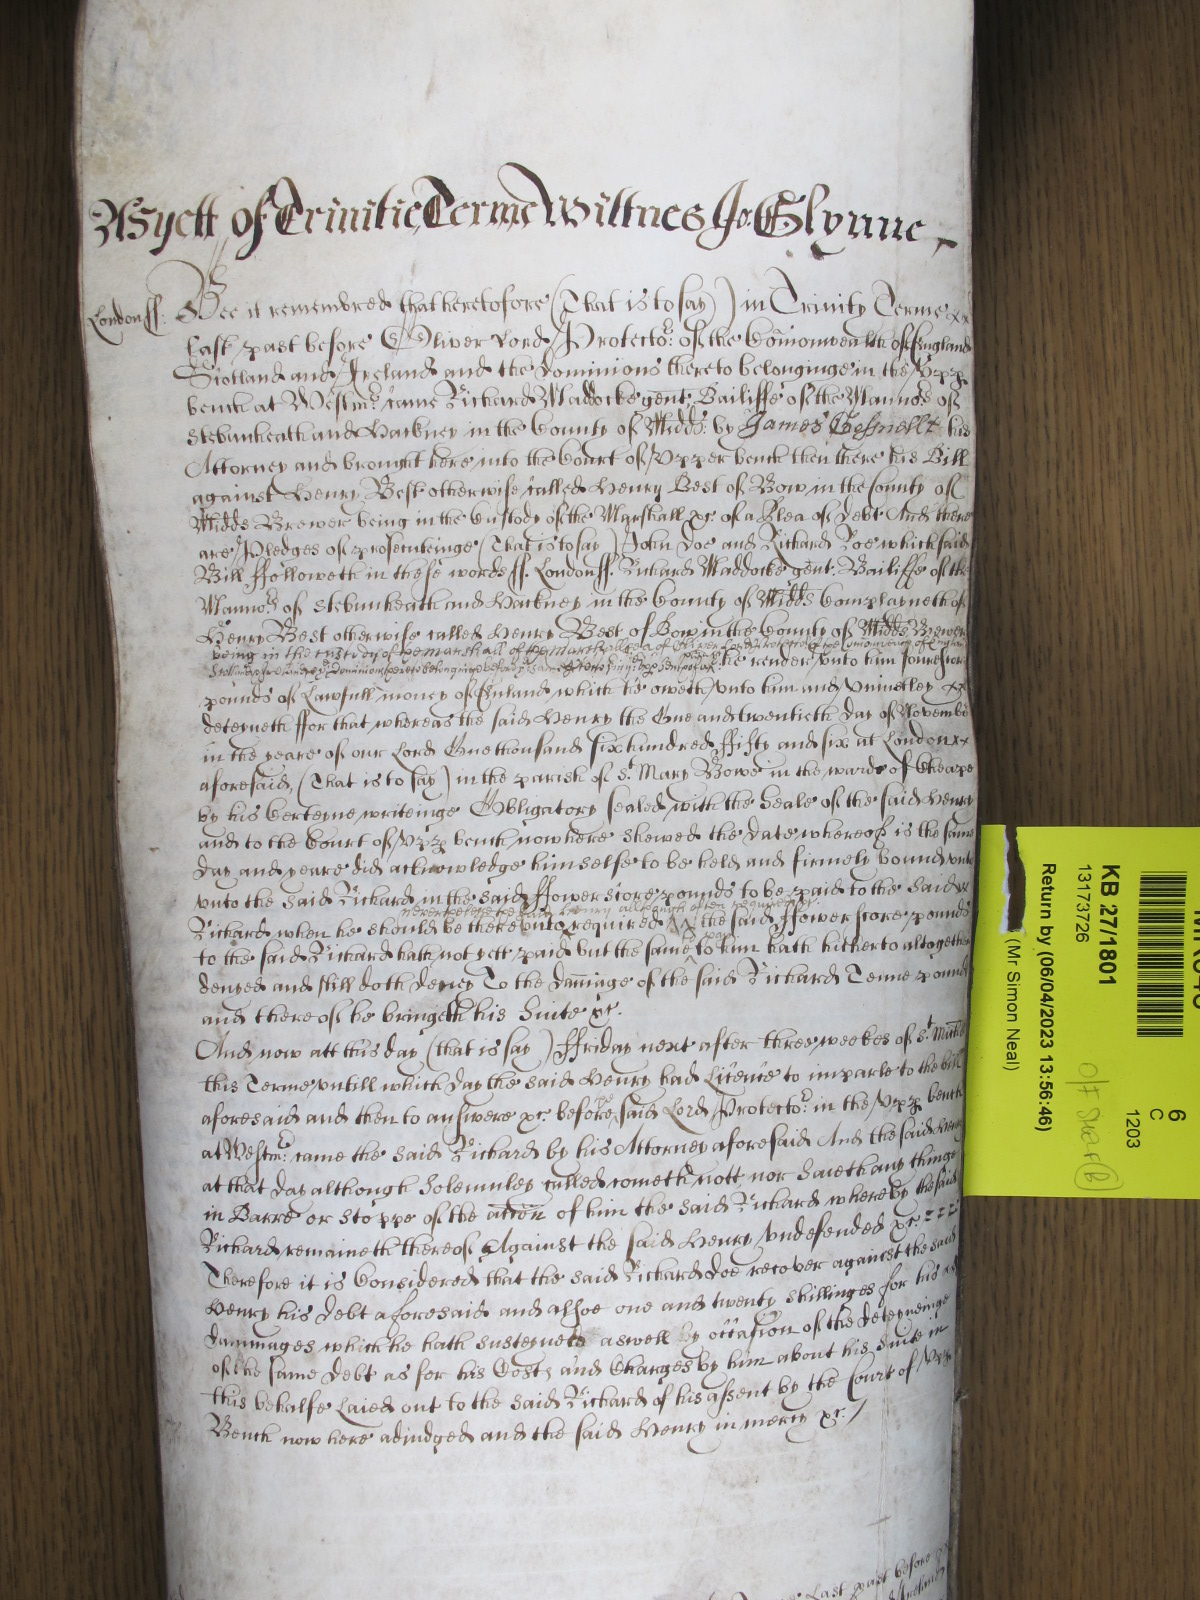 As yett of Trinitie Terme Wittnes Jo: Glynne
London ss. Bee it remembred that heretofore (That is to say) in Trinity Terme
Last past before Oliver Lord Protector: of the Com̄onwealth of England
Scotland and Ireland and the Dominions thereto belonginge in the Upp
bench at Westmr. came Richard Maddocke gent: Bailiffe of the Mannor of
Stebunheath and Hackney in the County of Midds: by James his
Attorney and brought here into the Court of Upper bench then there his Bill
against Henry Best otherwise called Henry Best of Bow in the County of
Midds Brewer being in the Custody of the Marshall &c. of a Plea of debt And there
are Pledges of prosecuteinge (That is to say) John Doe and Richard Roe which said
Bill ffolloweth in these words ss. London ss. Richard Maddocke gent: Bailiffe of the
Mannor of Stebunheath and Hackney in the County of Midds Complayneth of
Henry Best otherwise called Henry Best of Bow in the County of Midds Brewer
being in the custody of the Marshall of the Marshallsea of Oliver Lord Protector of the Comonwealth of England
Scotland & Ireland & the Dominions thereto belonginge before the same Lord Protector in the Upp bench
he render unto him foure score
pounds of Lawfull money of England which he oweth unto him and uniustley
deteyneth ffor that whereas the said Henry the One and twentieth day of November
in the yeare of our Lord One thousand six hundred ffifty and six at London
aforesaid, (That is to say) in the parish of St Mary Bowe in the warde of Cheape
by his Certeyne writeinge Obligatory sealed with the Seale of the said Henry
and to the Court of Upp bench now here shewed the date whereof is the same
day and yeare did acknowledge himselfe to be held and firmely bound unto
unto the said Richard in the said ffower score pounds to be paid to the said
neverthelesse the said Henry although often requested &c.
Richard when he should be thereunto required the said ffower score pounds
to pay
to the said Richard hath not yett paid but the same to him hath hitherto altogether
denyed and still doth deney To the dam̄age of the said Richard Tenne pounds
and thereof he bringeth his Suite &c.
And now att this day (that is say) ffriday next after three weekes of St Mich
this Terme untill which day the said Henry had Licence to imparle to the bill
aforesaid and then to answere &c. before the said Lord Protector: in the Upp bench
at Westmr: came the said Richard by his Attorney aforesaid And the said Henry
at that day although Solemnley called cometh nott nor Saieth any thinge
in Barre or Stoppe of the acc̄on of him the said Richard whereby the said
Richard remaineth thereof Against the said Henry undefended &c.
Therefore it is Considered that the said Richard doe recover against the said
Henry his debt aforesaid and alsoe one and twenty shillinges for his
dammages which he hath susteyned aswell by occasion of the deteyneinge
of the same debt as for his Costs and Charges by him about his Suite in
this behalfe Laied out to the said Richard of his assent by the Court of Upp
Bench now here adiudged and the said Henry in mercy &c.
Last past before
Ireland
6
C
1203
KB 27/1801
13173726
Return by (06/04/2023 13:56:46)
(Mr Simon Neal)